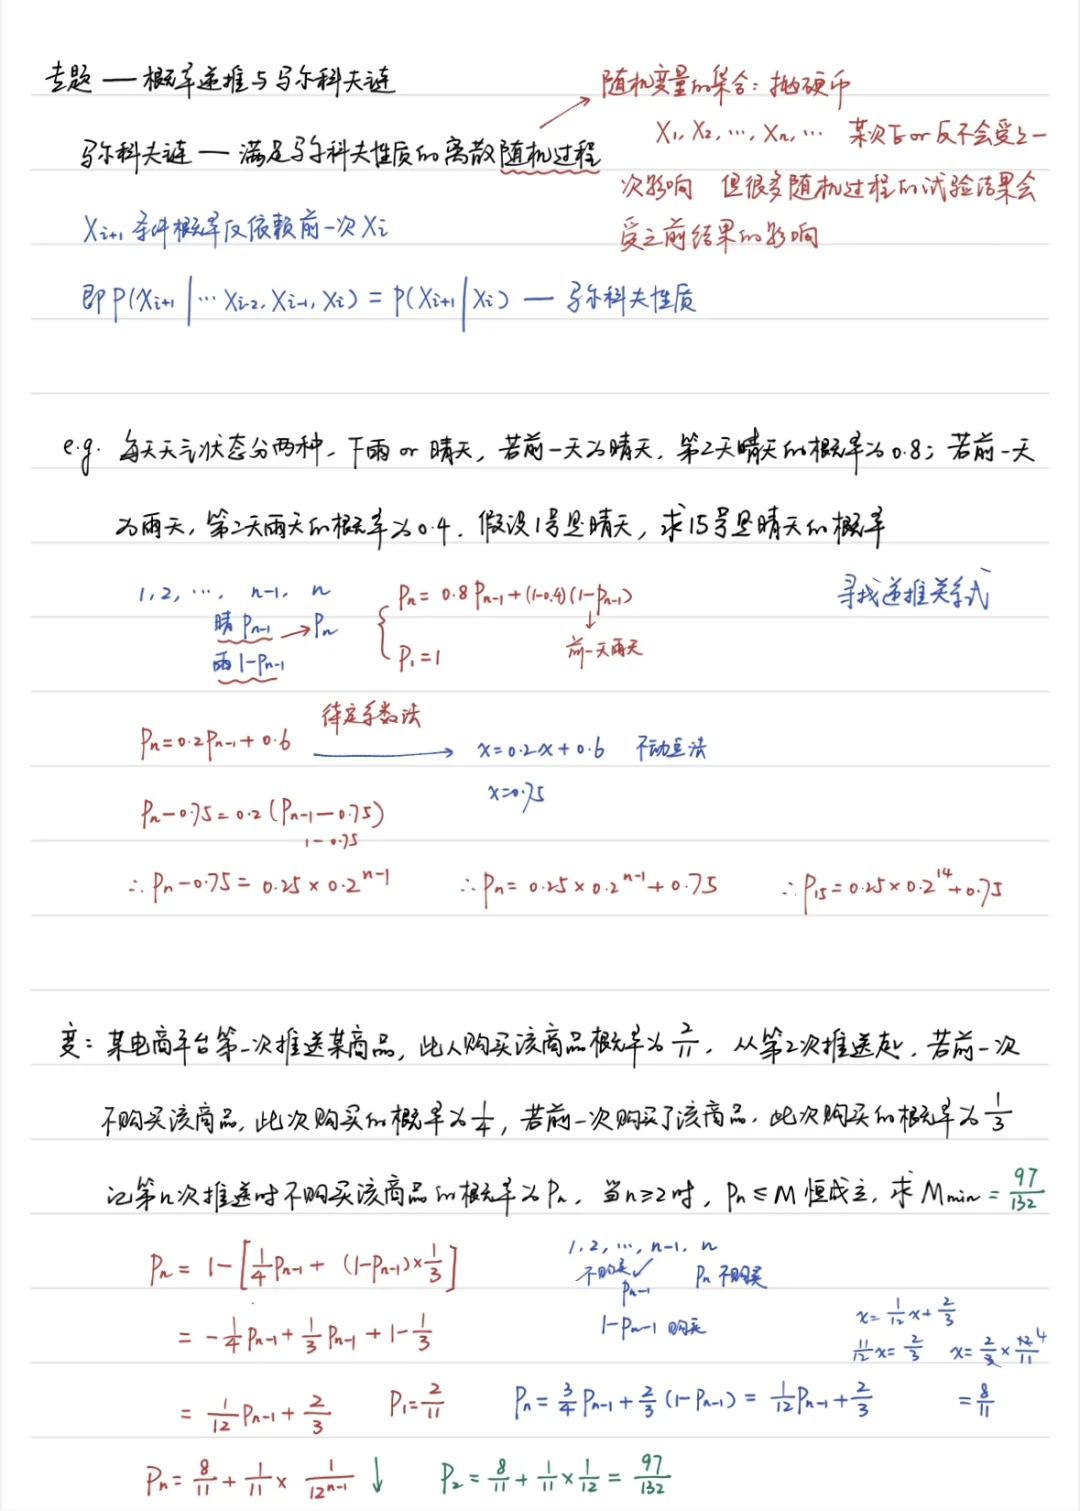 专题 — 概率递推与马尔科夫链
随机变量的集合：抛硬币
X₁, X₂, …, Xₙ, … 某次正or反不会受上一
次影响 但很多随机过程的试验结果会
受之前结果的影响
马尔科夫链 — 满足马尔科夫性质的离散随机过程
Xᵢ₊₁ 条件概率仅依赖前一次 Xᵢ
即 P(Xᵢ₊₁ | … Xᵢ₋₂, Xᵢ₋₁, Xᵢ) = P(Xᵢ₊₁ | Xᵢ) — 马尔科夫性质
e.g. 每天天气状态分两种, 下雨 or 晴天, 若前一天为晴天, 第2天晴天的概率为0.8; 若前一天
为雨天, 第二天雨天的概率为0.4. 假设1号是晴天, 求15号是晴天的概率
寻找递推关系式
1, 2, …, n-1, n
晴 Pₙ₋₁ → Pₙ
雨 1-Pₙ₋₁
Pₙ = 0.8Pₙ₋₁ + (1-0.4)(1-Pₙ₋₁)
↓
前一天雨天
P₁ = 1
Pₙ = 0.2Pₙ₋₁ + 0.6
待定系数法
x = 0.2x + 0.6 不动点法
x = 0.75
Pₙ - 0.75 = 0.2 (Pₙ₋₁ - 0.75)
1 - 0.75
∴ Pₙ - 0.75 = 0.25 × 0.2ⁿ⁻¹ ∴ Pₙ = 0.25 × 0.2ⁿ⁻¹ + 0.75 ∴ P₁₅ = 0.25 × 0.2¹⁴ + 0.75
变: 某电商平台第一次推送某商品, 此人购买该商品概率为 2/11. 从第2次推送起, 若前一次
不购买该商品, 此次购买的概率为 1/4, 若前一次购买了该商品, 此次购买的概率为 1/3
记第n次推送时不购买该商品的概率为Pₙ, 当n≥2时, Pₙ ≤ M 恒成立, 求 Mmin = 97/132
Pₙ = 1 - [1/4 Pₙ₋₁ + (1-Pₙ₋₁) × 1/3]
1, 2, …, n-1, n
不购买 ✓ Pₙ 不购买
Pₙ₋₁
1-Pₙ₋₁ 购买
= -1/4 Pₙ₋₁ + 1/3 Pₙ₋₁ + 1 - 1/3
x = 1/12 x + 2/3
11/12 x = 2/3 x = 2/3 × 12/11 4
= 8/11
= 1/12 Pₙ₋₁ + 2/3 P₁ = 2/11
Pₙ = 3/4 Pₙ₋₁ + 2/3 (1-Pₙ₋₁) = 1/12 Pₙ₋₁ + 2/3
Pₙ = 8/11 + 1/11 × 1/12ⁿ⁻¹ ↓ P₂ = 8/11 + 1/11 × 1/12 = 97/132